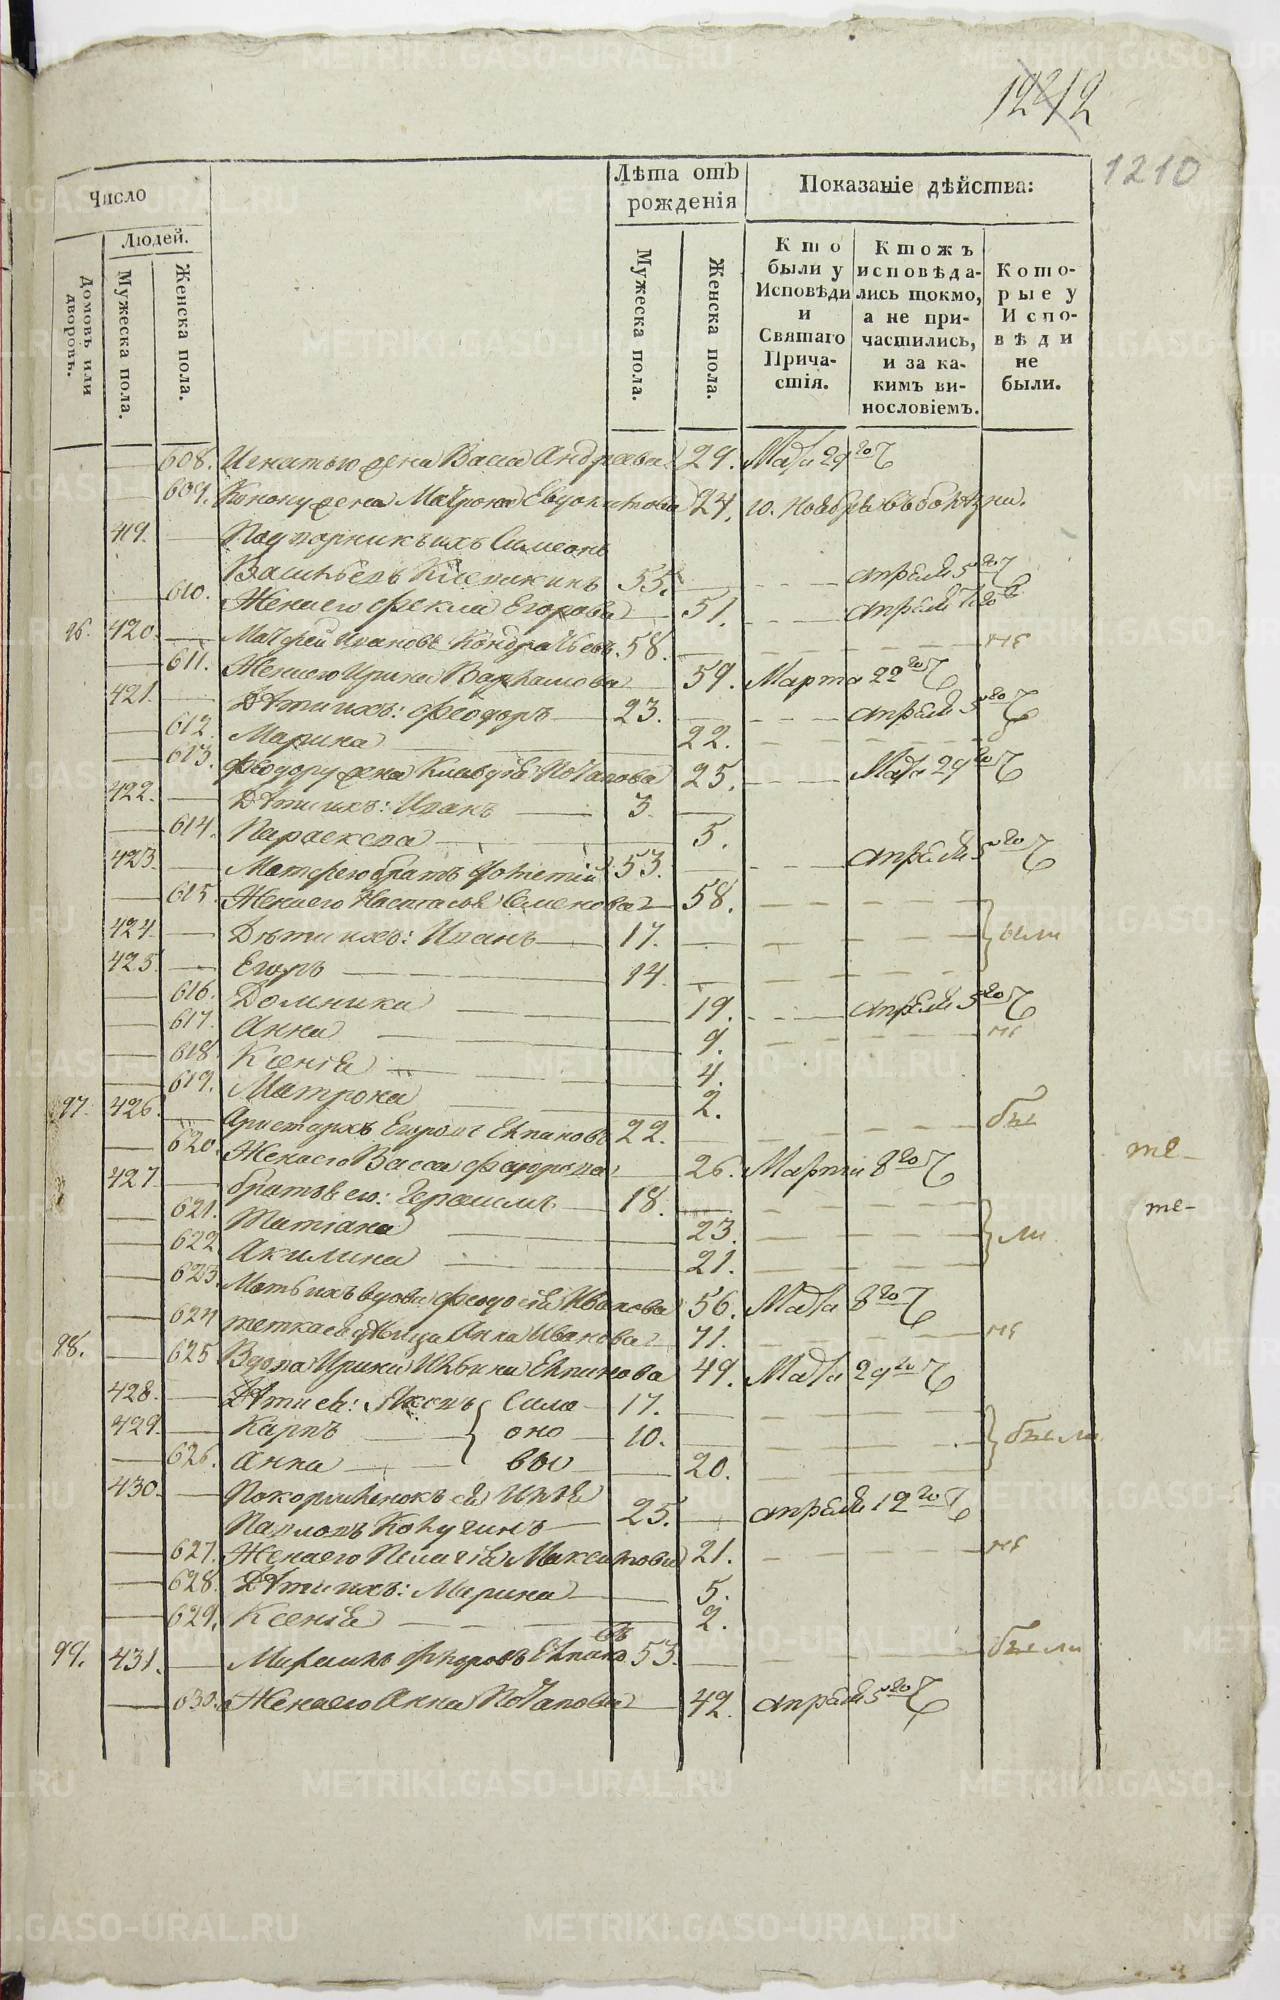 1212
1210
Число
Людей.
Домовъ или дворовъ.
Мужеска пола.
Женска пола.
Лѣта отъ рожденія
Мужеска пола.
Женска пола.
Показаніе дѣйства:
Кто были у Исповѣди и Святаго Причастія.
Ктожъ исповѣдались токмо, а не причастились, и за какимъ винословіемъ.
Которые у Исповѣди не были.
608. Игнатью жена Васса Андреева 29. Маія 29го
609. Конону жена Матрона Евдокимова 24. 10. Ноября въ болѣзни.
419. Подворникъ ихъ Симеонъ
Васильевъ 55. апрѣля 5го
610. Жена его Фекла Егорова 51. апрѣля
96. 420. Матфей Ивановъ Кондратьевъ 58. не
611. Жена его Ирина Варламова 59. Марта 22го
421. Дѣти ихъ: Феодоръ 23. апрѣля 5го
612. Марина 22.
613. Феодору жена Клавдія Потапова 25. Маія 29го
422. Дѣти ихъ: Иванъ 3.
614. Параскева 5.
423. Матфею братъ Фотий 53. апрѣля 5го
615. Жена его Настасья Семенова 58.
424. Дѣти ихъ: Иванъ 17. были
425. Егоръ 14.
616. Домника 19. апрѣля 5го
617. Анна 9. не
618. Ксенія 4.
619. Матрона 2.
97. 426. Аристархъ Егоровъ Епановъ 22. бы
620. Жена его Васса Федорова 26. Марта 8го
те-
427. братья его: Герасимъ 18.
те-
621. Татіана 23. ли
622 Акилина 21.
623. Мать ихъ вдова Феодосія Иванова 56. Маія 8го
624 тетка Анна Иванова 71. не
98. 625 Вдова Ирина Епанова 49. Маія 29го
428. Дѣти ея: Яковъ Сило 17.
429. Карпъ оно 10. были
626. Анна вы 20.
430. Покормленокъ ея Илья
Павловъ 25. апрѣля 12го
627. Жена его Пелагія Максимова 21. не
628. Дѣти ихъ: Марина 5.
629. Ксенія 2.
въ
99. 431. Федоровъ Епано 53. были
630. Жена его Анна Потапова 42. апрѣля 5го
METRIKI.GASO-URAL.RU